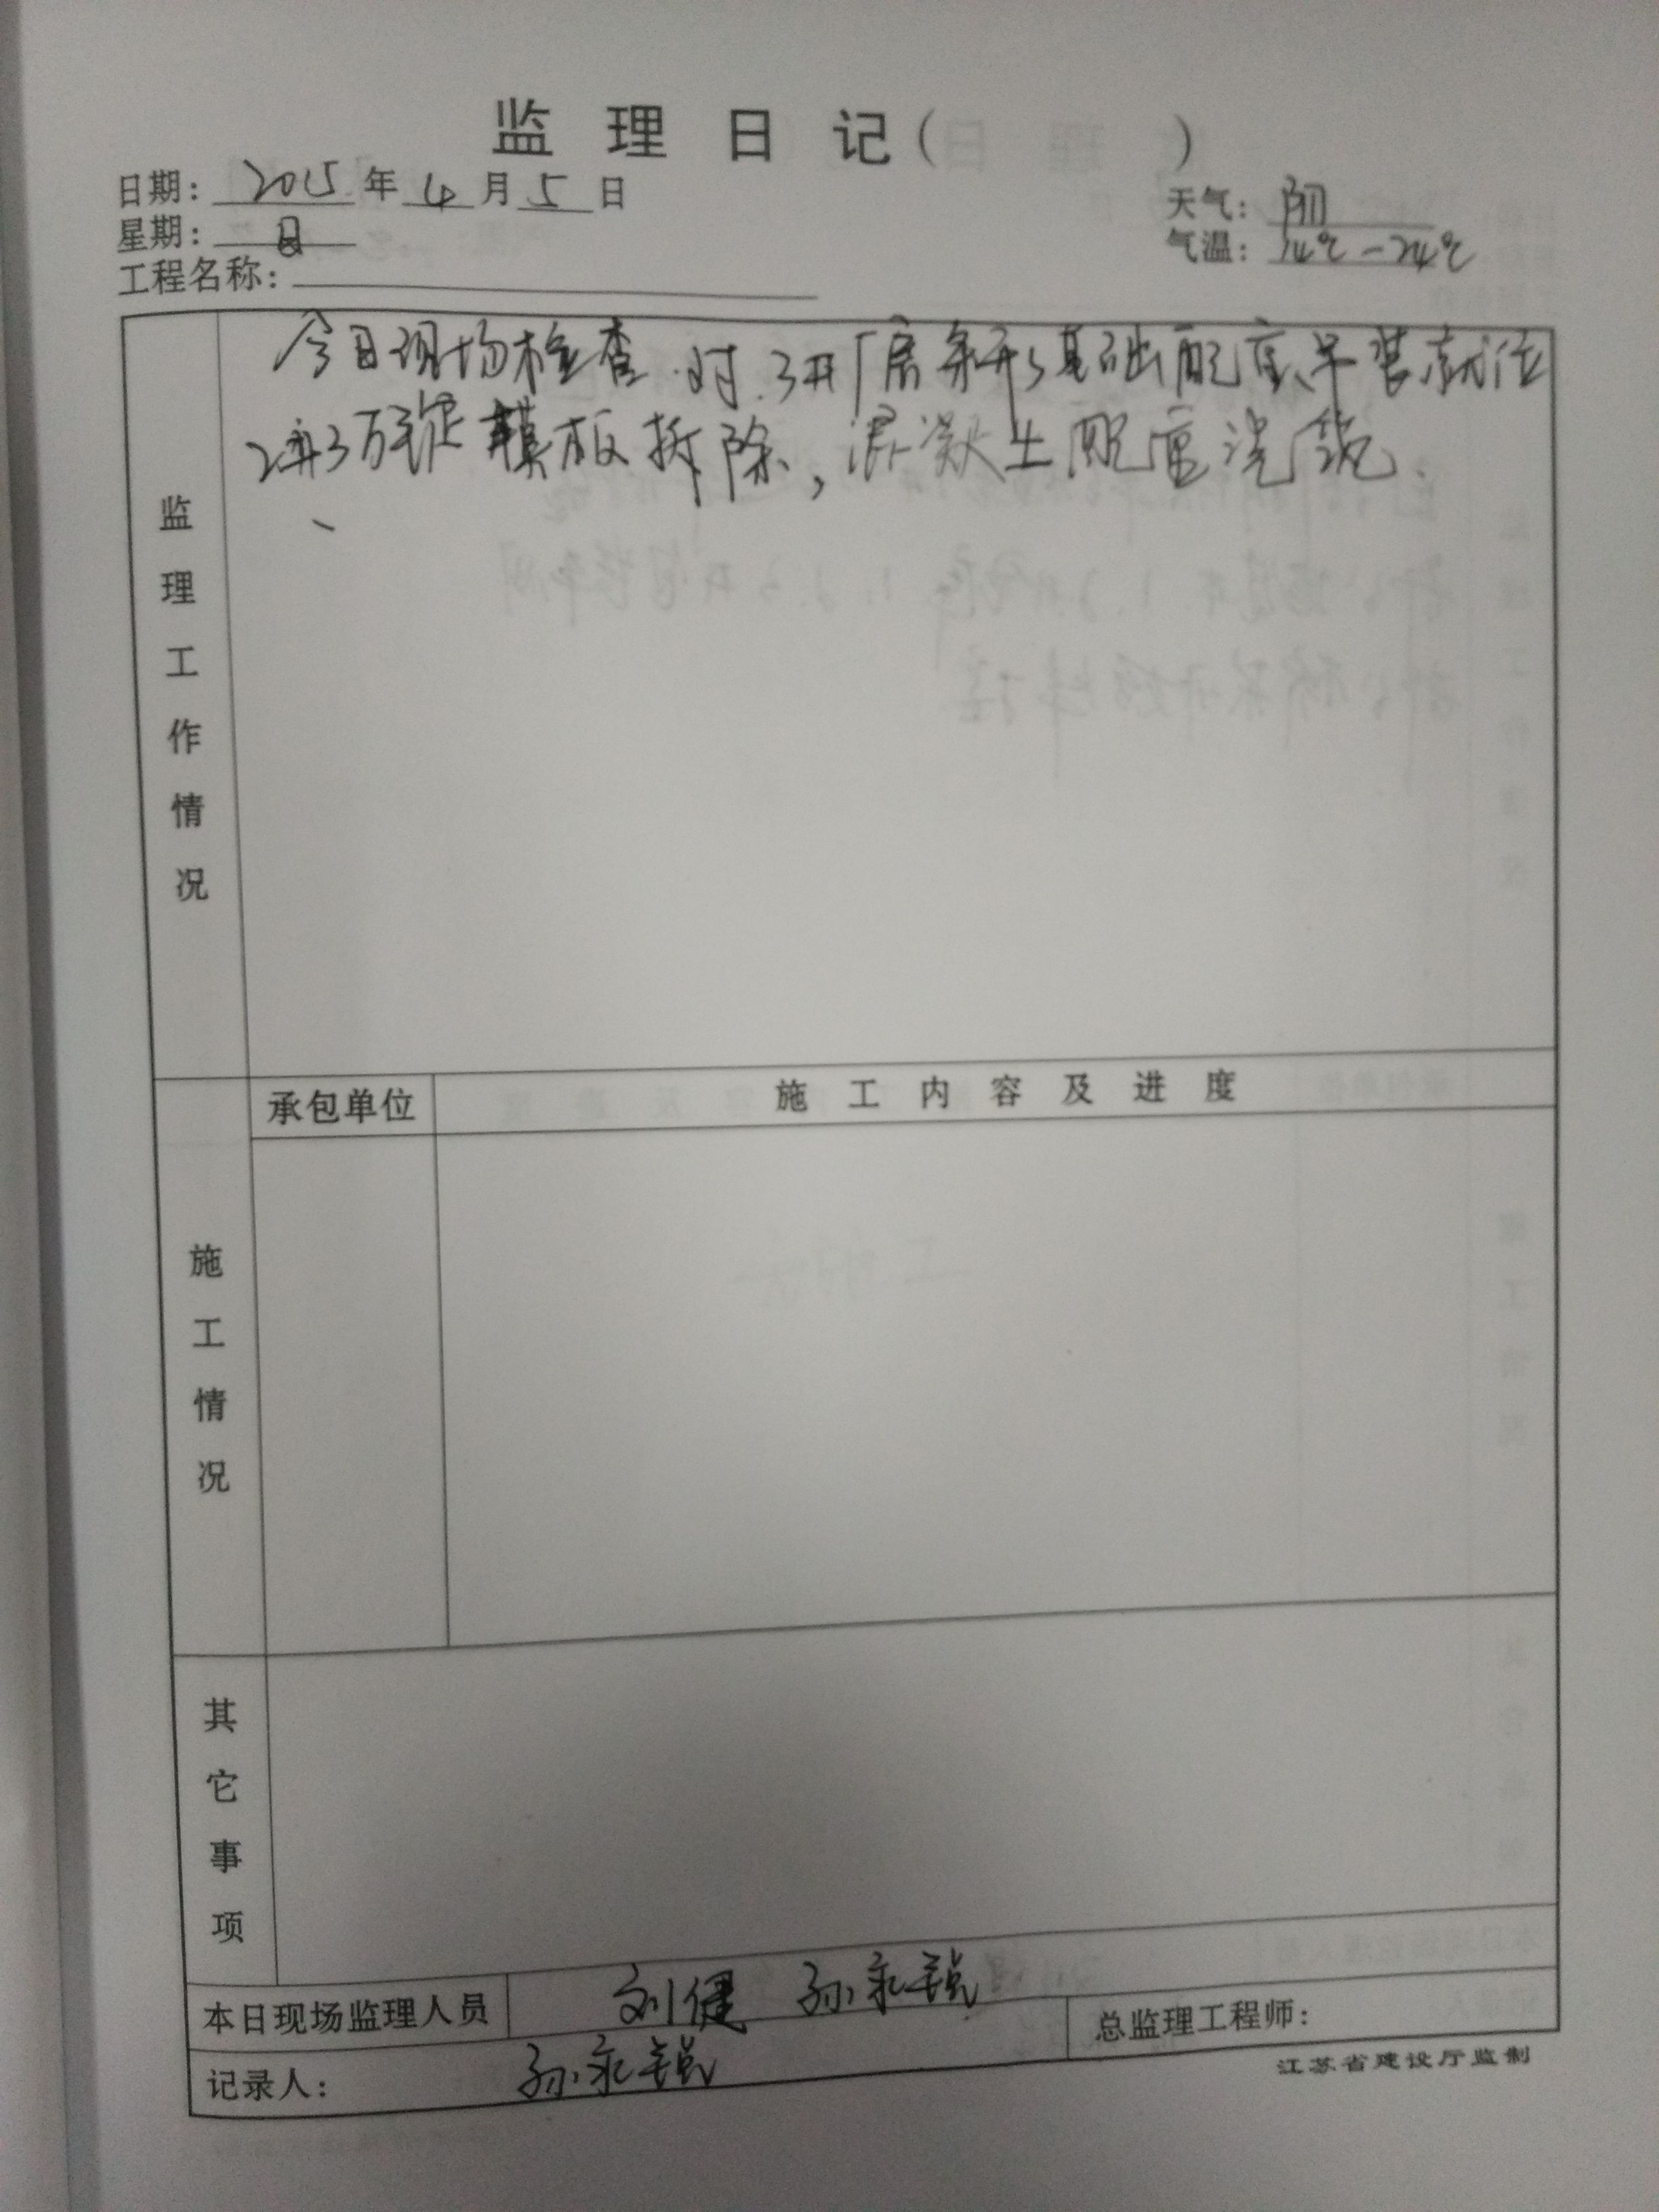 监理日记（ ）
日期：2015年4月5日
天气：阴
星期：日
气温：14℃-24℃
工程名称：
监理工作情况
今日现场检查.对.3#厂房条形基础配 吊装就位
模板拆除，混凝土配 浇筑.
承包单位
施工内容及进度
施工情况
其它事项
本日现场监理人员
刘健 孙永锐
总监理工程师：
记录人：孙永锐
江苏省建设厅监制